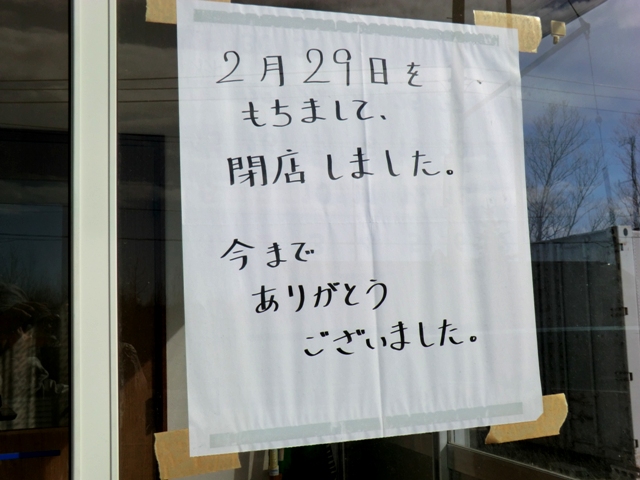 2月29日を
もちまして、
閉店しました。
今まで
ありがとう
ございました。